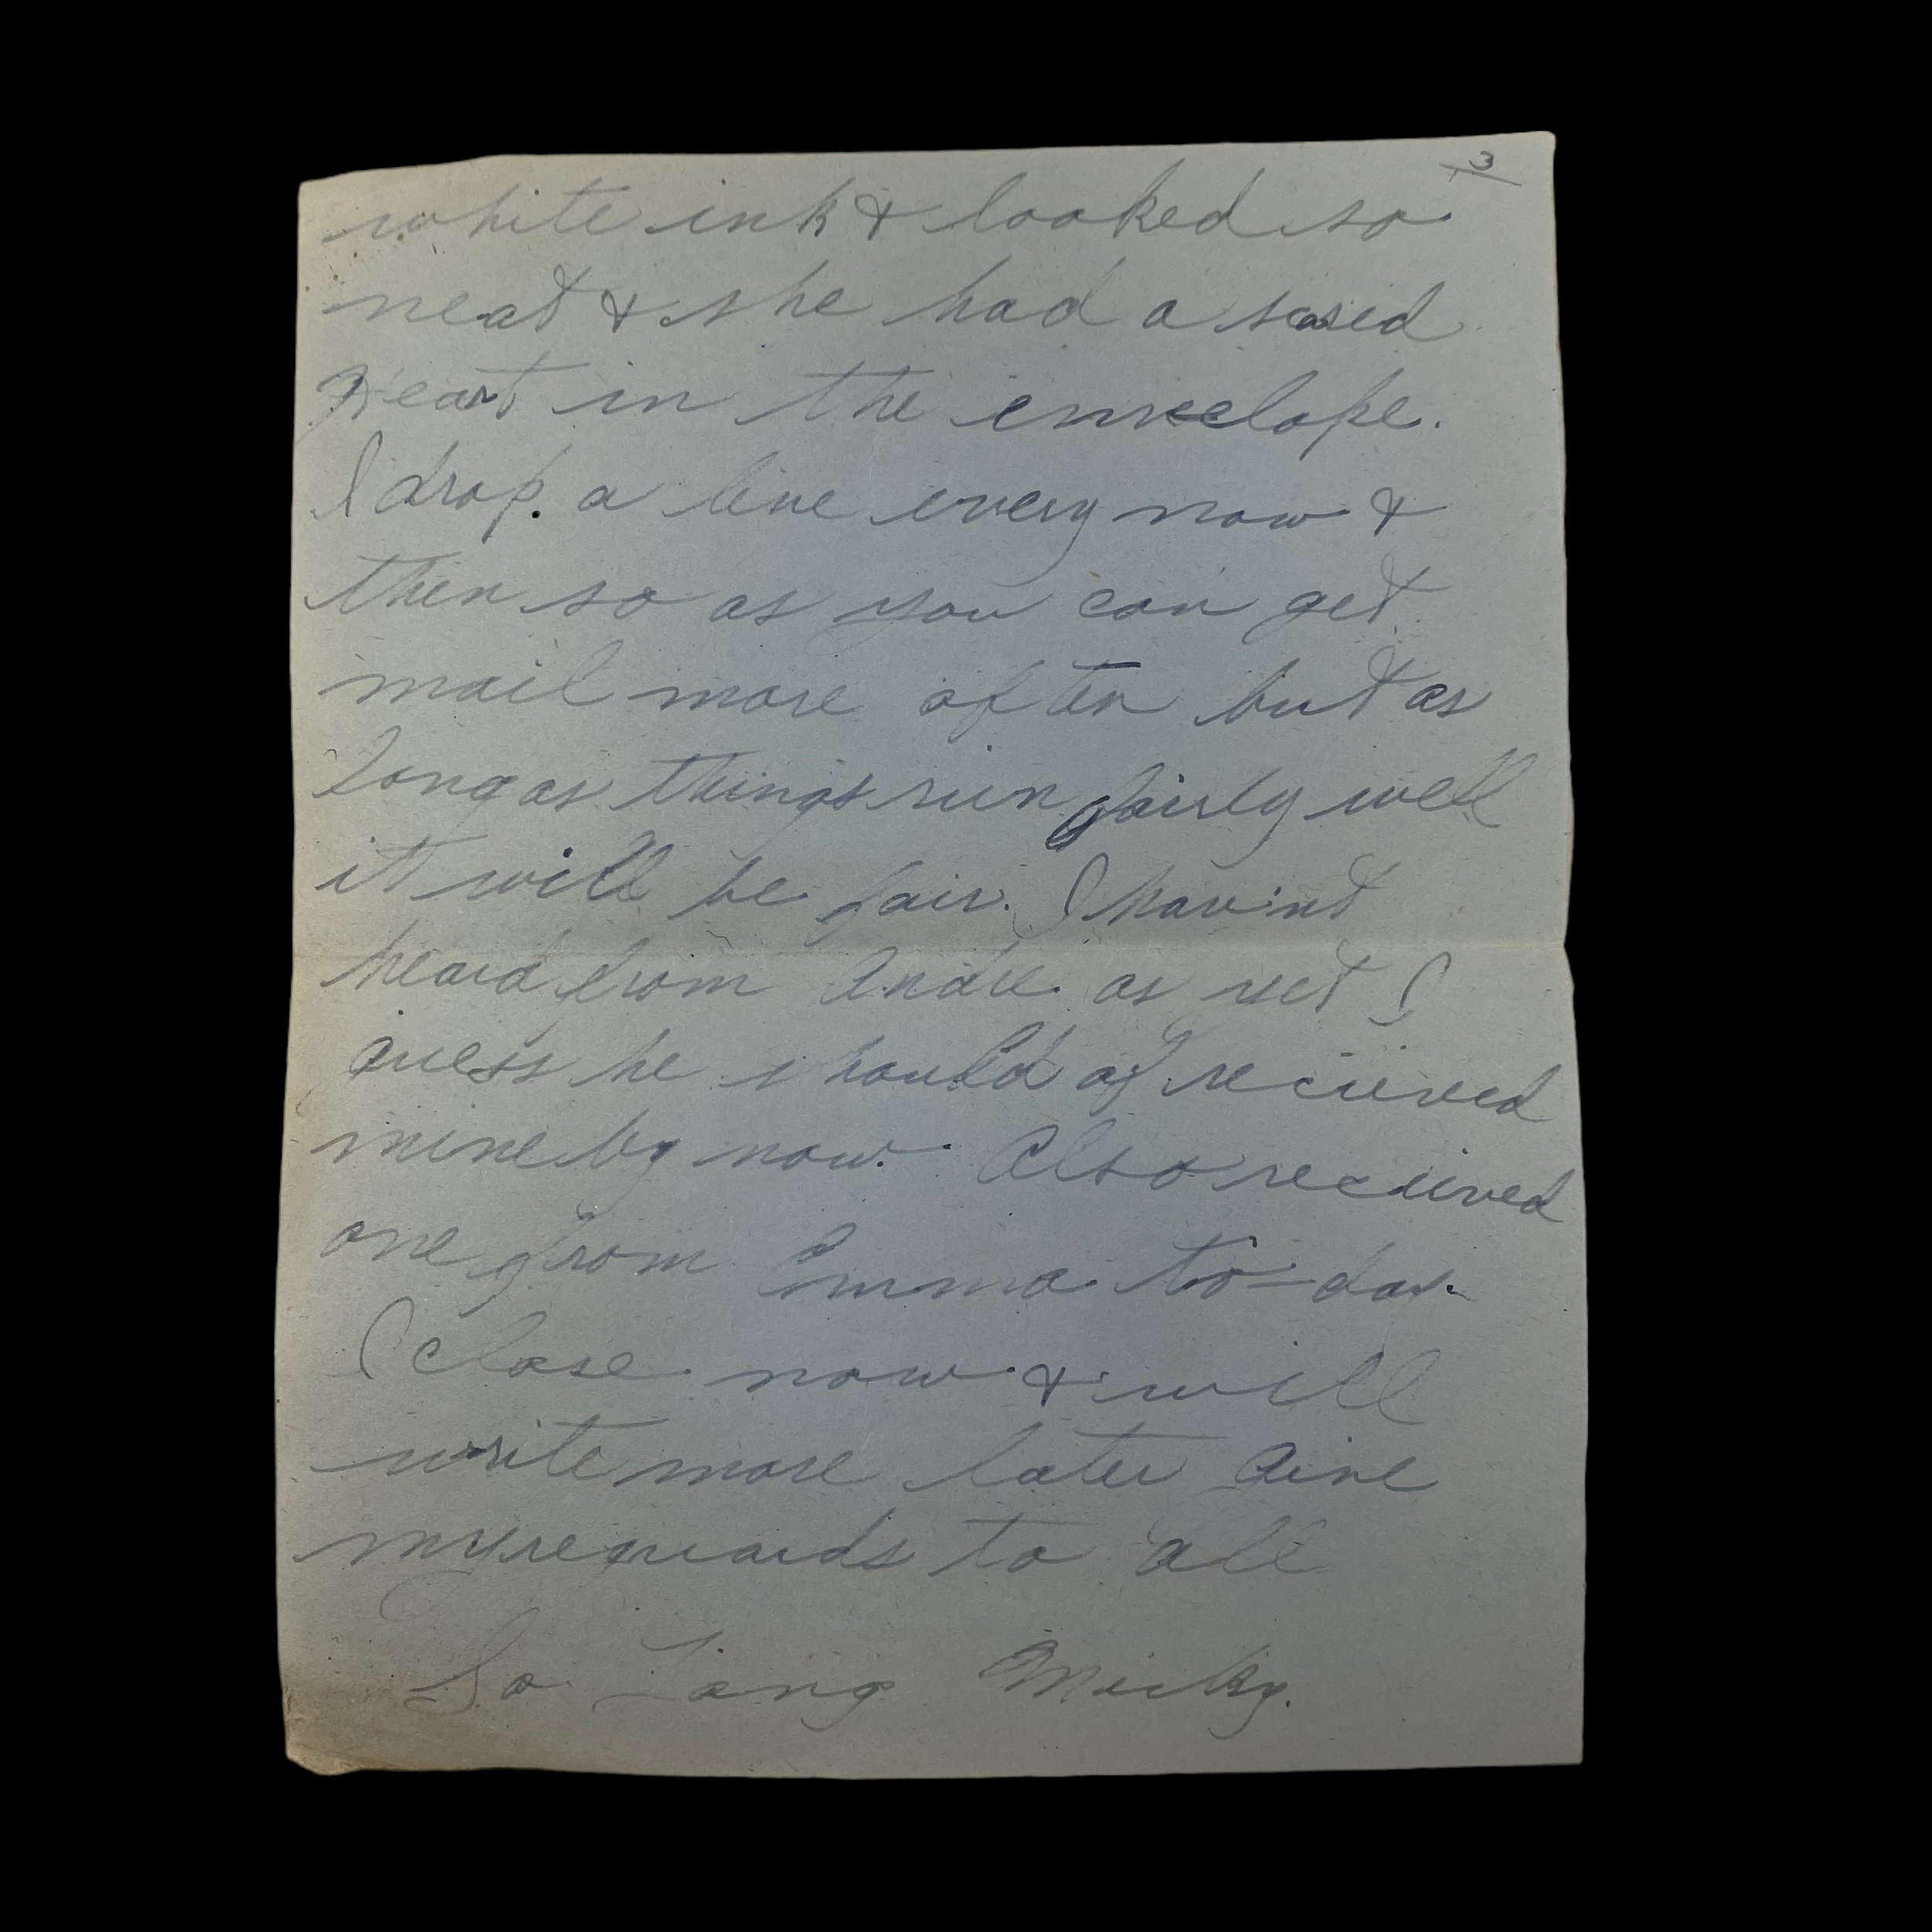 3
white ink & looked so
neat & she had a sacred
Heart in the envelope.
I drop. a line every now &
then so as you can get
mail more often but as
long as things run fairly well
it will be fair. I hav'nt
heard from Andre as yet I
guess he should of recieved
mine by now. Also recieved
one from Emma to-day.
I close now & will
write more later Give
my reguards to all
So Long Micky.